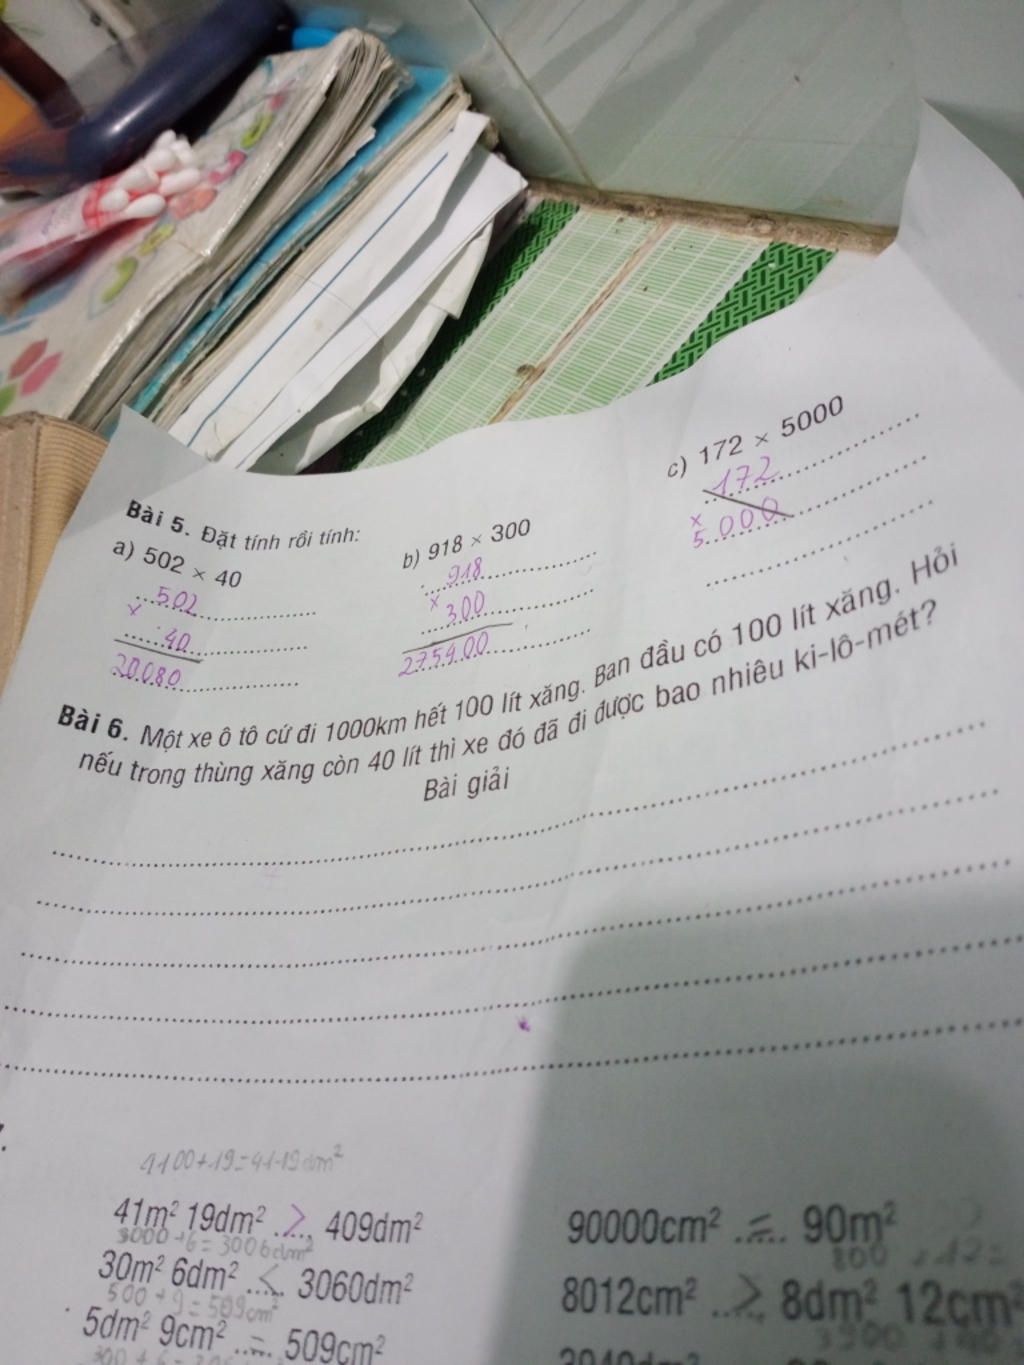 Bài 5. Đặt tính rồi tính:
a) 502 × 40
502
×
40
20080
b) 918 × 300
918
×
300
275400
c) 172 × 5000
172
×
5000
Bài 6. Một xe ô tô cứ đi 1000km hết 100 lít xăng. Ban đầu có 100 lít xăng. Hỏi
nếu trong thùng xăng còn 40 lít thì xe đó đã đi được bao nhiêu ki-lô-mét?
Bài giải
4100+19=4119dm²
41m² 19dm² ..>.. 409dm²
3000+6=3006dm²
30m² 6dm² ..<.. 3060dm²
500+9=509cm²
5dm² 9cm² ..=.. 509cm²
90000cm² ..=.. 90m²
800 + 12 =
8012cm² ..>.. 8dm² 12cm²